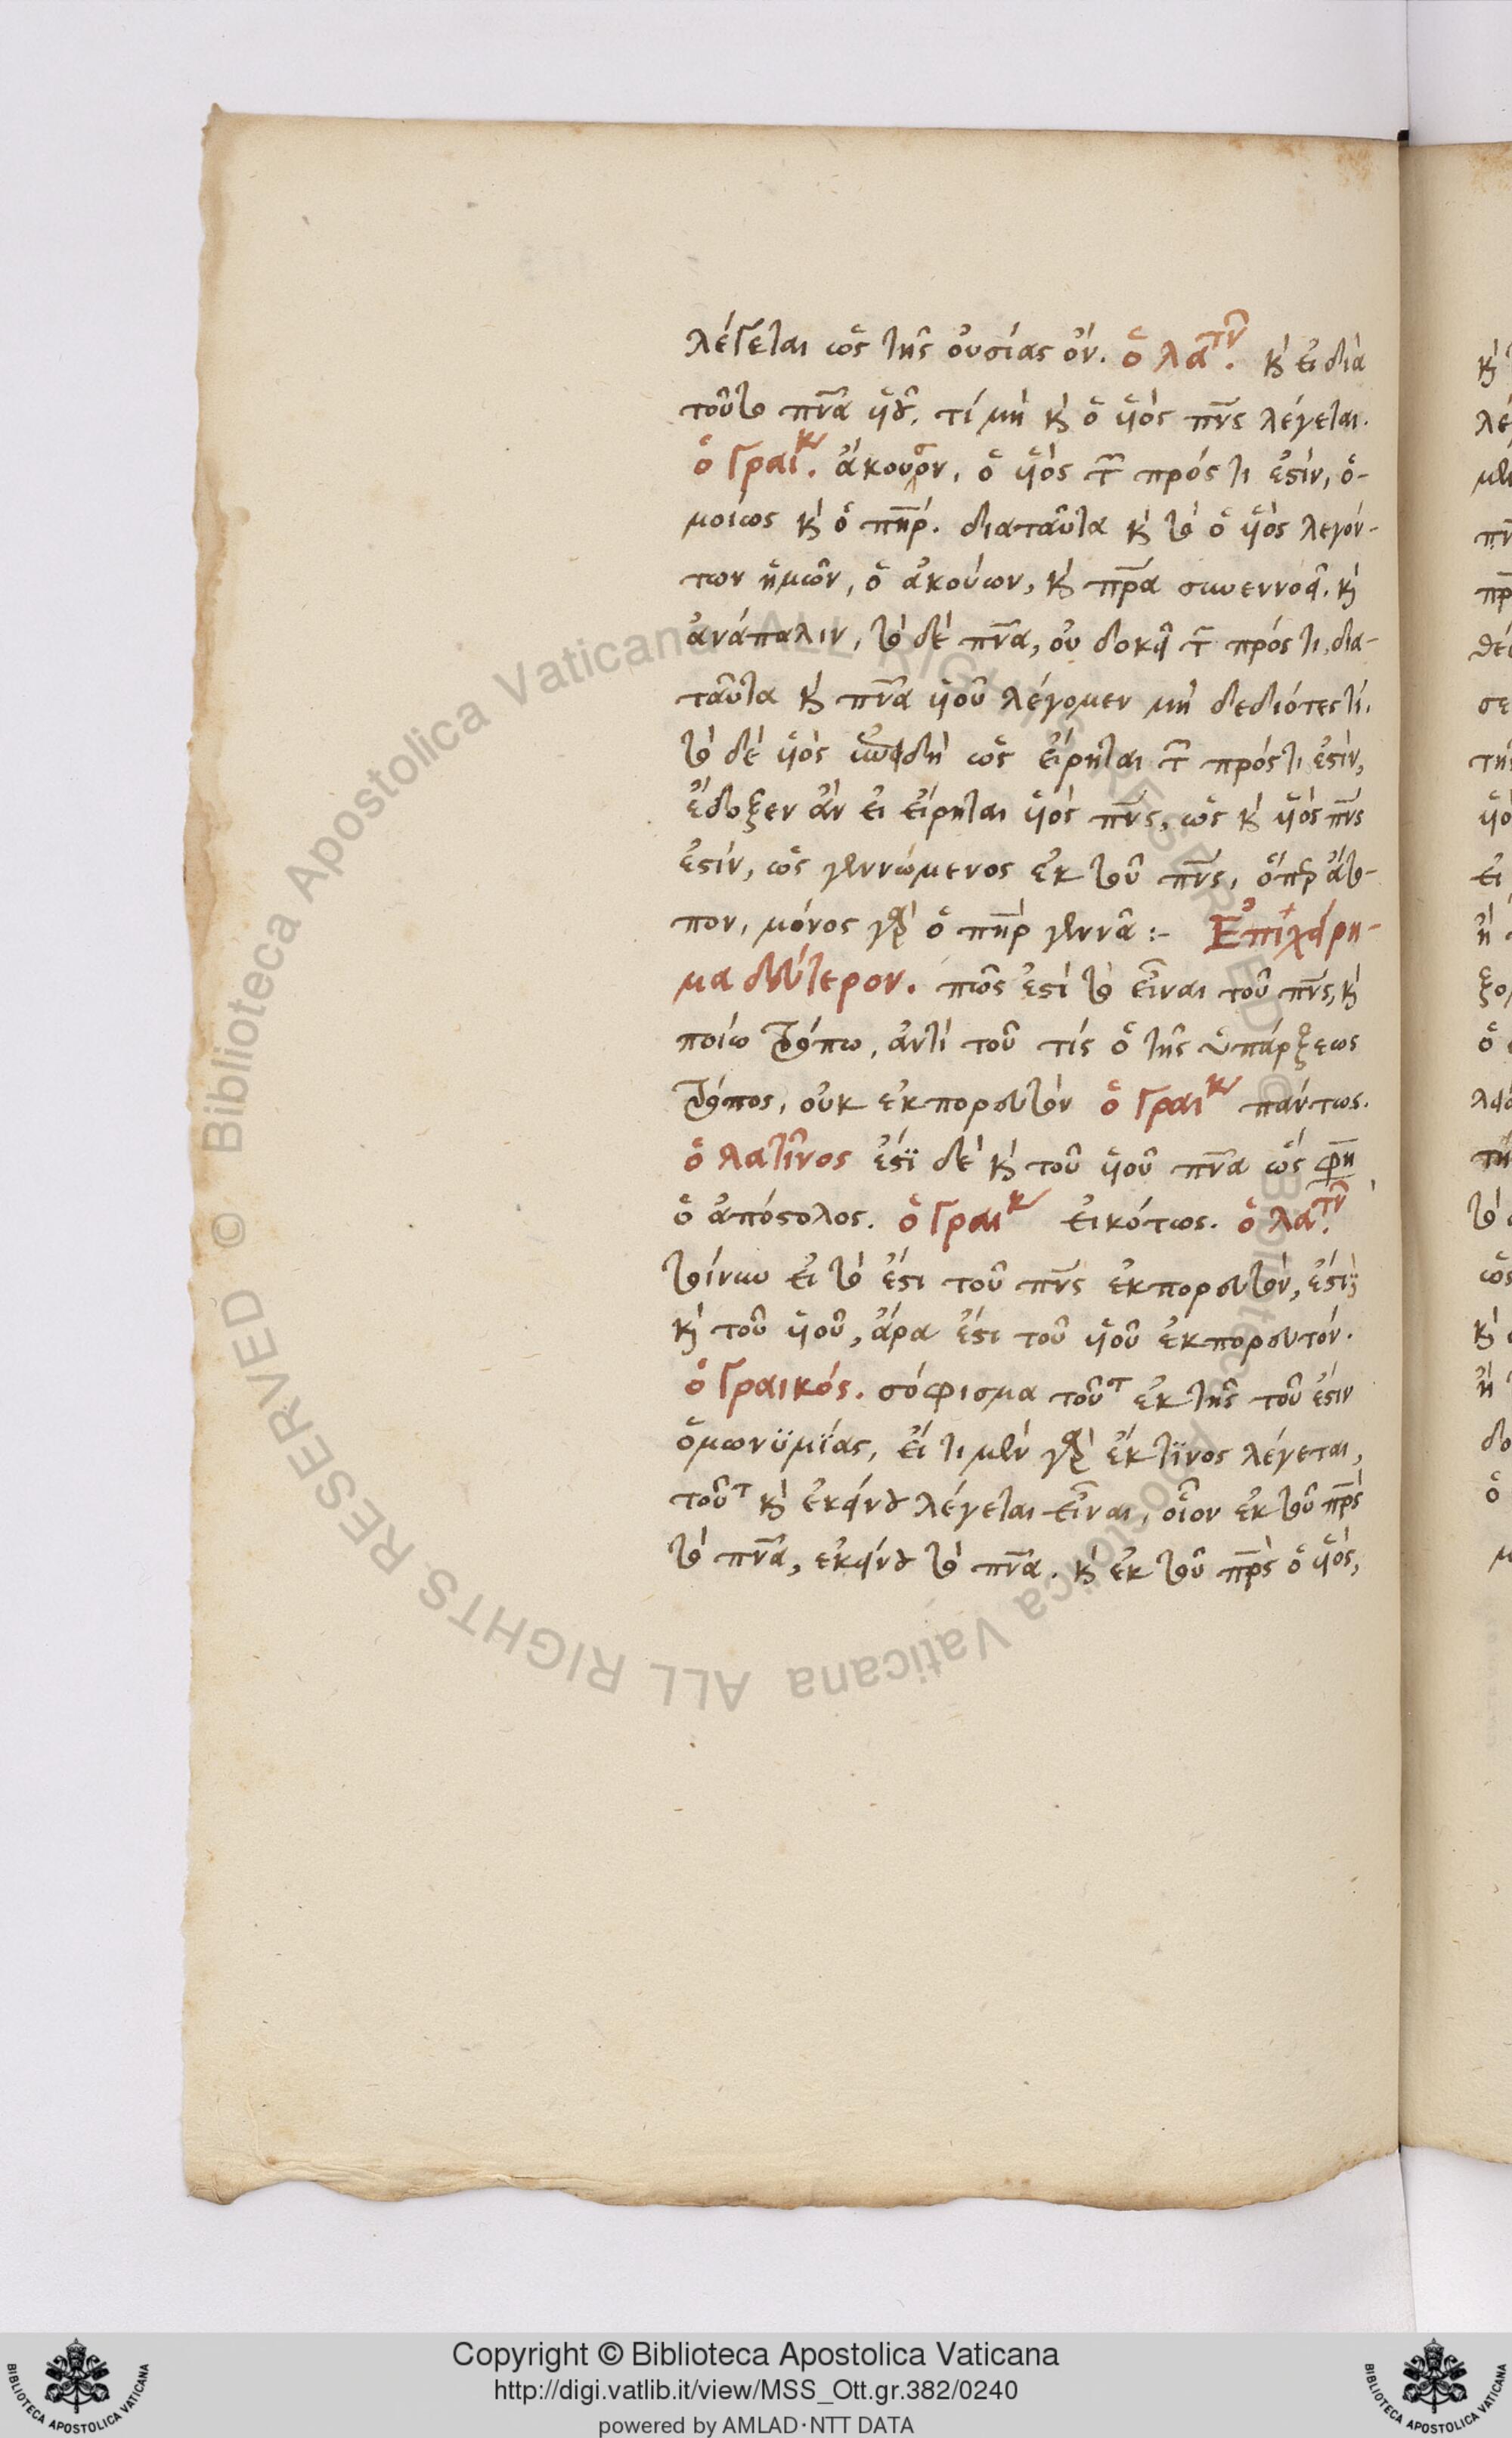 λέγεται ὡς τῆς οὐσίας ὄν. ὁ λατν. κ ει δια
τοῦτο πνα ὑιου, τί μὴ κ ὁ ὑιὸς πνς λέγεται.
ὁ Γραικ. ἄκουσον, ὁ ὑιὸς τ πρός τι ἐστίν, ὁ-
μοίως κ ὁ πηρ. διαταῦτα κ τὸ ὁ ὑιὸς λεγόν-
των ἡμῶν, ὁ ἀκούων, κ πρα συνεννοεῖ. κ
ἀνάπαλιν, τὸ δὲ πνα, ου δοκεῖ τ πρός τι, δια-
ταῦτα κ πνα ὑιοῦ λέγομεν μὴ δεδιότες τί.
τὸ δὲ ὑιὸς ὡς εἴρηται τ πρός τι ἐστίν,
ἔδοξεν ἂν ει εἴρηται ὑιὸς πνς, ὡς κ ὑιὸς πνς
ἐστίν, ὡς γεννώμενος ἐκ τοῦ πνς, ὅπερ ἄτο-
πον, μόνος γὰρ ὁ πηρ γεννᾶ :- Ἐπιχείρη-
μα δεύτερον. πῶς ἐστί τὸ εἶναι τοῦ πνς, κ
ποίω τρόπω, ἀντὶ τοῦ τίς ὁ τῆς ὑπάρξεως
τρόπος, οὐκ ἐκπορευτόν ὁ Γραικ πάντως.
ὁ λατῖνος ἔστϊ δὲ κ τοῦ ὑιοῦ πνα ὡς φη
ὁ ἀπόστολος. ὁ Γραικ εἰκότως. ὁ λατν.
τοίνυν εἰ τὸ ἔστι τοῦ πνς ἐκπορευτὸν, ἔστι
κ τοῦ ὑιοῦ, ἄρα ἔστι τοῦ ὑιοῦ ἐκπορευτόν.
ὁ Γραικός. σόφισμα τοῦτ ἐκ τῆς τοῦ ἐστιν
ὁμωνϋμϊας, εἴ τι μὲν γὰρ ἔκ τϊνος λέγεται,
τοῦτ κ ἐκείνου λέγεται εἶναι, οἷον ἐκ τοῦ πρς
τὸ πνα, ἐκείνου τὸ πνα. κ ἐκ τοῦ πρς ὁ ὑιὸς,
Copyright © Biblioteca Apostolica Vaticana
http://digi.vatlib.it/view/MSS_Ott.gr.382/0240
powered by AMLAD·NTT DATA